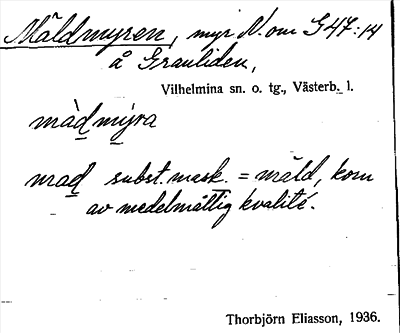 Mäldmyren, myr N. om G47:14
å Grauliden,
Vilhelmina sn. o. tg., Västerb. l.
màd̲mýra
mad̲ subst. mask. = mäld, korn
av medelmåttig kvalité.
Thorbjörn Eliasson, 1936.